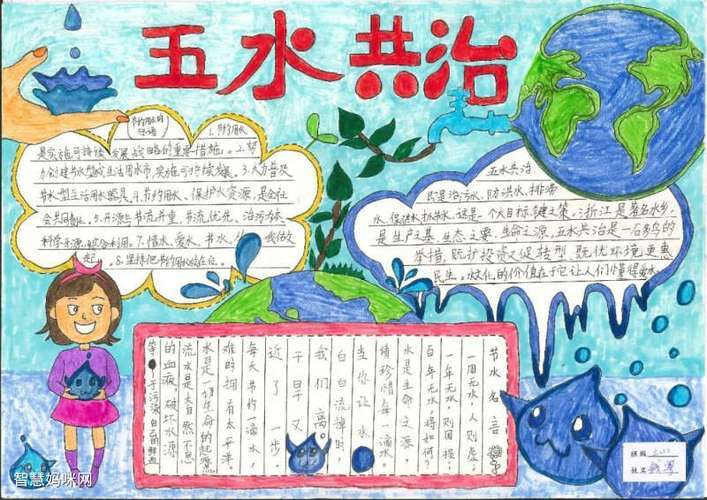 五水共治
节约用水的
标语
1.节约用水
是实施可持续发展战略的重要措施。2.努
力创建节水型城市,实施可持续发展。3.大力普及
节水型生活用水器具。4.节约用水、保护水资源,是全社
会共同责任。5.开源与节流并重,节流优先、治污为本
科学开源、综合利用。7.惜水、爱水、节水、从我做
起。8.坚持把节约用水放在首位。
五水共治
是治污水、防洪水、排涝
水、保供水、抓节水。这是一个大目标、关键之策。浙江是著名水乡,
是生产之基、生态之要、生命之源,五水共治是一石多鸟的
举措,既扩投资又促转型,既优环境更惠
民生。水文化的价值在于它让人们懂得
节水名言
一周无水,人则虑;
一年无水,则国
百年无水,将如何?
水是生命之源,
请珍惜每一滴水。
当你让水
白白流掉时
我们离
干旱又
近了一步。
每天节约一滴水
难时拥有太平洋
水是一切生命的起源
流水是大自然不息
的血液,破坏水源
等于污染自己的鲜血
班级
姓名
智慧妈咪网